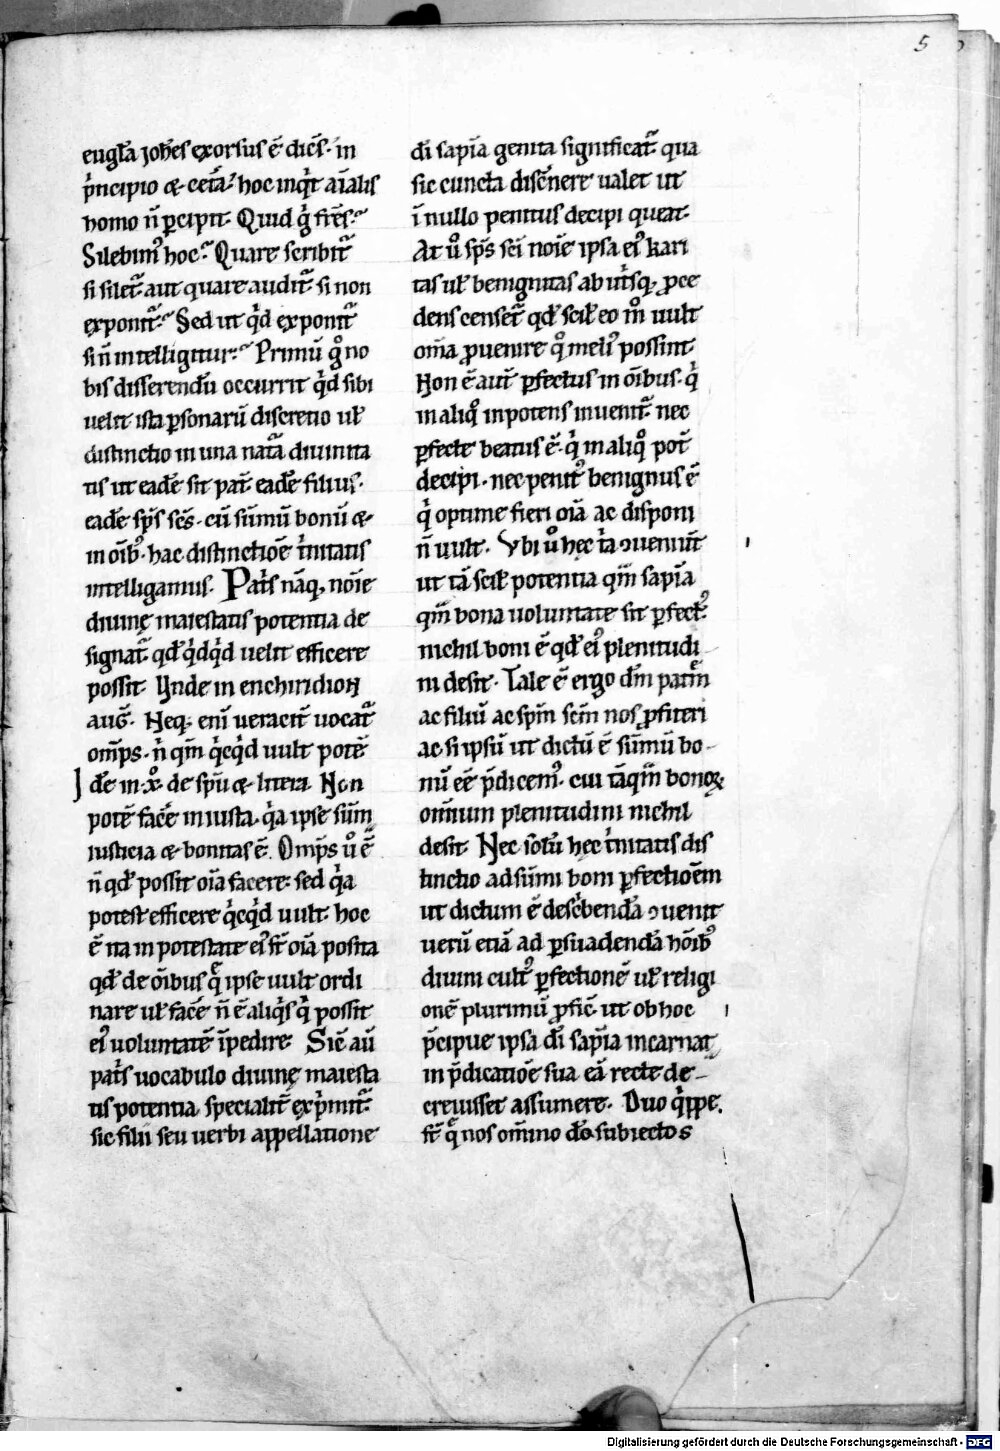 5
eugl̄a ȷoh̄es exorsus ē dicēs. in
p͛ncipio ⁊ cet̄a. hoc inq͛t aīalis
homo n̄ ꝑcipit. Quid g͛ fr̄es.
Silebimꝰ hoc. Quare scribit᷑
si silet᷑ aut quare audit᷑ si non
exponit᷑. Sed ut q͛d exponit᷑
si n̄ intelligitur. Primū gͦ no
bis disserendū occurrit q͛d sibi
uelit ista ꝑsonarū discretio uł
distinctio in una nat᷑a diuinita
tis ut eadē sit pat̄. eadē filius.
eadē sp̄s sc̄s. cū sūmū bonū ⁊
in oīb; hac distinctiōe t͛nitatis
intelligamus. Pat͛s nāq, noīe
diuinę maiestatis potentia de
signat᷑ qd̄ q͛dq͛d uelit efficere
possit. Unde in enchiridion
auḡ. Neq, eni ueracit̄ uocat᷑
om̄ps. n͛ qm̄ q͛cq͛d uult potē
dē in .xͦ. de sp̄u ⁊ littera. Non
potē facē iniusta. q͛a ipse sūm
iusticia ⁊ bonitas ē. Om̄ps uͦ ē
n̄ qd̄ possit oīa facere. sed q͛a
potest efficere q͛cq͛d uult. hoc
ē ita in potestate eiꝰ st̄ oīa posita
qd̄ de oībus qͣ ipse uult ordi
nare uł facē n̄ ē aliq͛s q͛ possit
eiꝰ uoluntatē īpedire. Sic̄ aū
pat͛s uocabulo diuinę maiesta
tis potentia specialit̄ exp͛mit᷑.
sic filii seu uerbi appellatione
dī sapīa genita significat᷑ qua
sic cuncta discernere ualet ut
ī nullo penitus decipi queat.
At uͦ sp̄s sc̄i noīe ipsa eiꝰ kari
tas uł benignitas ab ut͛sq, ꝓce
dens censet᷑ qd̄ scił eo mͦ uult
om̄a ꝓuenire qͦ meliꝰ possint.
Non ē aut̄ ꝑfectus in oībus. q͛
in aliqͦ inpotens inuenit᷑ nec
ꝑfecte beatus ē. q͛ in aliqͦ pot̄
decipi. nec penitꝰ benignus ē
q͛ optime fieri oīa ac disponi
n̄ uult. Ubi uͦ hęc t͛a ꝯueniūt
ut tā scił potentia qm̄ sapīa
qm̄ bona uoluntate sit ꝑfectꝰ
nichil boni ē qd̄ eiꝰ plenitudi
ni desit. Tale ē ergo dm̄ patrē
ac filiū ac spm̄ scm̄ nos ꝓfiteri
ac si ipsū ut dictū ē sūmū bo-
nū eē p̄dicemꝰ. cui tāqm̄ bonoꝝ
omnium plenitudini nichil
desit. Nec solū hęc t͛nitatis dis
tinctio ad sūmi boni ꝑfectiōem
ut dictum ē desc͛bendā ꝯuenit
uerū etiā ad ꝑsuadendā hoīb;
diuini cultꝰ ꝑfectionē uł religi
onē plurimū ꝓfic̄. ut ob hoc
p̄cipue ipsa dī sapīa incarnat
in p̄dicatiōe sua eā recte de-
creuisset assumere. Duo q͛ppe
st̄ qͣ nos om̄ino dō subiectos
Digitalisierung gefördert durch die Deutsche Forschungsgemeinschaft - DFG